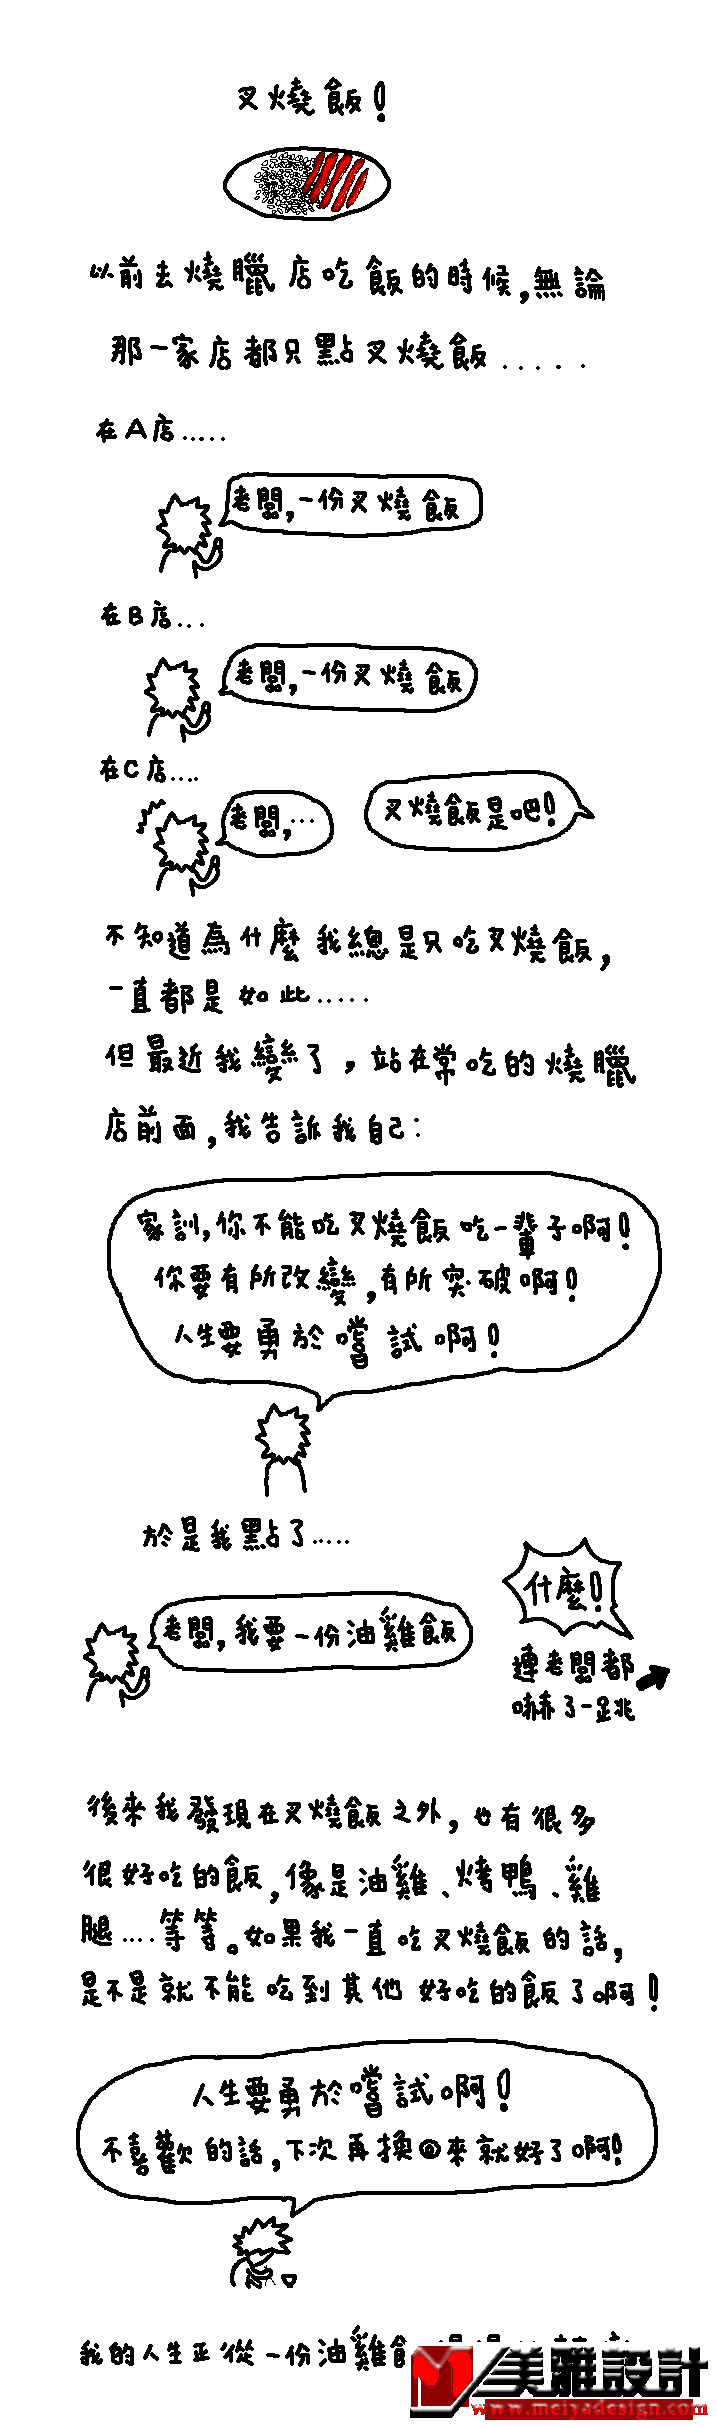 叉燒飯!
以前去燒臘店吃飯的時候,無論
那一家店都只點叉燒飯.....
在A店.....
老闆,一份叉燒飯
在B店...
老闆,一份叉燒飯
在C店....
老闆,...
叉燒飯是吧!
不知道為什麼我總是只吃叉燒飯,
一直都是如此.....
但最近我變了,站在常吃的燒臘
店前面,我告訴我自己:
家訓,你不能吃叉燒飯吃一輩子啊!
你要有所改變,有所突破啊!
人生要勇於嚐試啊!
於是我點了.....
什麼!
老闆,我要一份油雞飯
連老闆都
嚇了一跳
後來我發現在叉燒飯之外,也有很多
很好吃的飯,像是油雞、烤鴨、雞
腿....等等。如果我一直吃叉燒飯的話,
是不是就不能吃到其他好吃的飯了啊!
人生要勇於嚐試啊!
不喜歡的話,下次再換回來就好了啊!
我的人生正從一份油雞飯
美雅設計
www.meiyadesign.com